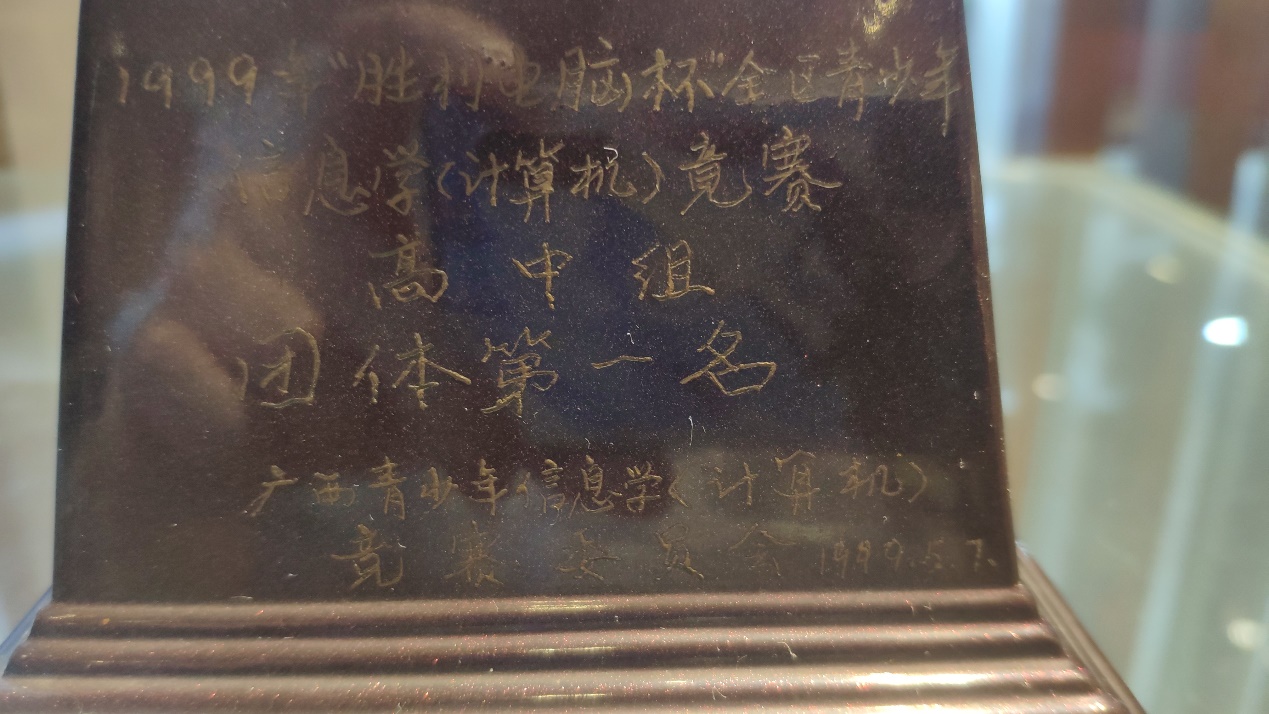 1999年“胜利电脑杯”全区青少年
信息学(计算机)竞赛
高中组
团体第一名
广西青少年信息学(计算机)
竞赛委员会1999.5.7.